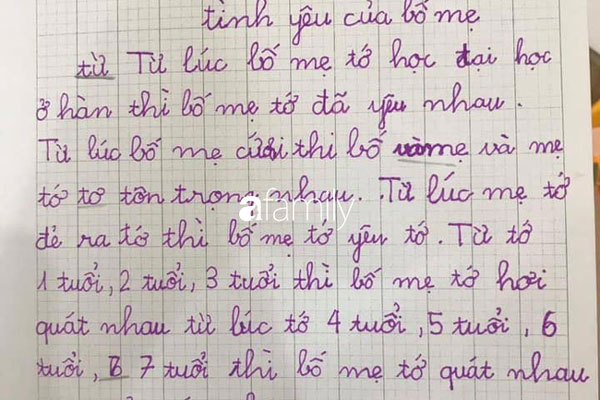 tình yêu của bố mẹ
từ Từ lúc bố mẹ tớ học đại học
ở hàn thì bố mẹ tớ đã yêu nhau.
Từ lúc bố mẹ cưới thì bố vàmẹ và mẹ
tớ tơ tôn trọng nhau. Từ lúc mẹ tớ
afamily
đẻ ra tớ thì bố mẹ tớ yêu tớ. Từ tớ
1 tuổi, 2 tuổi, 3 tuổi thì bố mẹ tớ hơi
quát nhau từ lúc tớ 4 tuổi, 5 tuổi, 6
tuổi, 7 tuổi thì bố mẹ tớ quát nhau